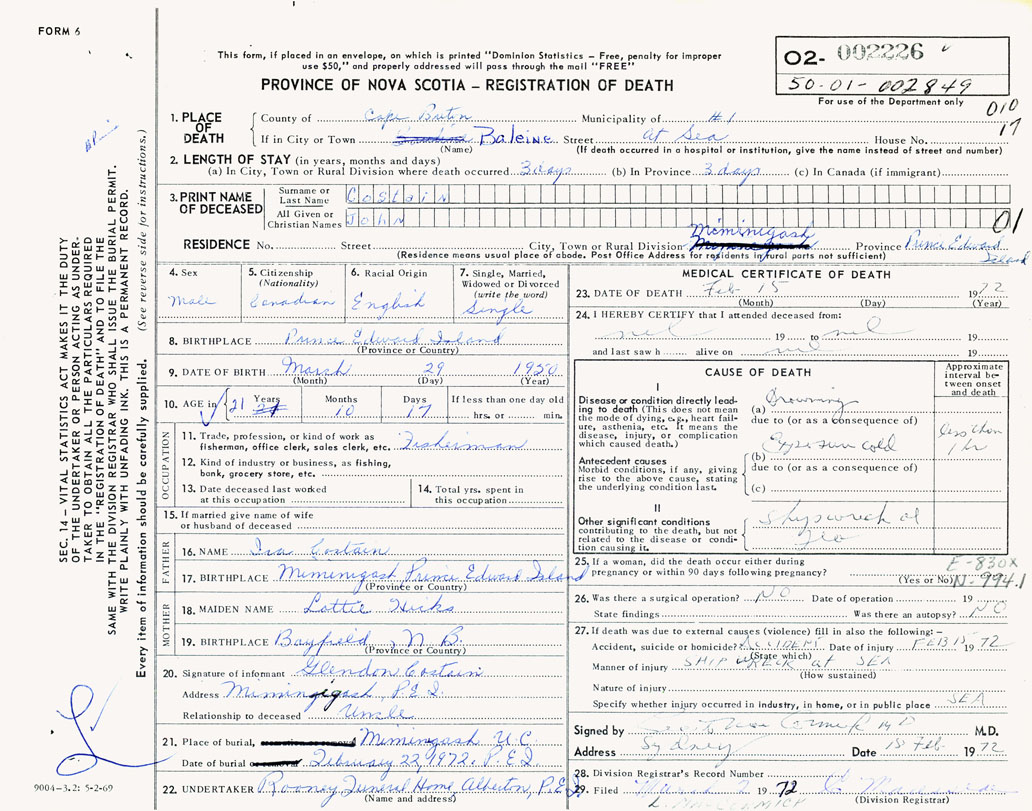 FORM 6
This form, if placed in an envelope, on which is printed "Dominion Statistics – Free, penalty for improper
use $50," and properly addressed will pass through the mail "FREE"
PROVINCE OF NOVA SCOTIA – REGISTRATION OF DEATH
O2- 002226
50-01-002849
For use of the Department only
010
17
1. PLACE OF DEATH
County of Cape Breton Municipality of #1
If in City or Town Baleine Street at Sea House No.
(Name) (If death occurred in a hospital or institution, give the name instead of street and number)
2. LENGTH OF STAY (in years, months and days)
(a) In City, Town or Rural Division where death occurred 3 days (b) In Province 3 days (c) In Canada (if immigrant)
3. PRINT NAME OF DECEASED
Surname or Last Name Costain
All Given or Christian Names John
01
RESIDENCE No. Street City, Town or Rural Division Miminegash Province Prince Edward Island
(Residence means usual place of abode. Post Office Address for residents in rural parts not sufficient)
4. Sex Male
5. Citizenship (Nationality) Canadian
6. Racial Origin English
7. Single, Married, Widowed or Divorced (write the word) Single
8. BIRTHPLACE Prince Edward Island
(Province or Country)
9. DATE OF BIRTH March 29 1950
(Month) (Day) (Year)
10. AGE in Years 21 Months 10 Days 17 If less than one day old hrs. or min.
OCCUPATION
11. Trade, profession, or kind of work as fisherman, office clerk, sales clerk, etc. Fisherman
12. Kind of industry or business, as fishing, bank, grocery store, etc.
13. Date deceased last worked at this occupation
14. Total yrs. spent in this occupation
15. If married give name of wife or husband of deceased
FATHER
16. NAME Ira Costain
17. BIRTHPLACE Miminigash Prince Edward Island
(Province or Country)
MOTHER
18. MAIDEN NAME Lottie Hicks
19. BIRTHPLACE Bayfield, N.B.
(Province or Country)
20. Signature of informant Glendon Costain
Address Miminigigash, P.E.I.
Relationship to deceased Uncle
21. Place of burial, Mimingash U.C.
Date of burial February 22, 1972, P.E.I.
22. UNDERTAKER Rooney Funeral Home, Alberton, P.E.I.
(Name and address)
MEDICAL CERTIFICATE OF DEATH
23. DATE OF DEATH Feb 15 1972
(Month) (Day) (Year)
24. I HEREBY CERTIFY that I attended deceased from:
nil 19 to nil 19
and last saw h alive on nil 19
CAUSE OF DEATH
Approximate interval between onset and death
I
Disease or condition directly leading to death (This does not mean the mode of dying, e.g., heart failure, asthenia, etc. It means the disease, injury, or complication which caused death.)
(a) Drowning
due to (or as a consequence of)
less than 1 hr
Antecedent causes
Morbid conditions, if any, giving rise to the above cause, stating the underlying condition last.
(b) Exposure cold
due to (or as a consequence of)
(c)
II
Other significant conditions contributing to the death, but not related to the disease or condition causing it.
Shipwreck at Sea
25. If a woman, did the death occur either during pregnancy or within 90 days following pregnancy?
(Yes or No)
E-830X
N-994.1
26. Was there a surgical operation? NO Date of operation 19
State findings Was there an autopsy? NO
27. If death was due to external causes (violence) fill in also the following:–
Accident, suicide or homicide? ACCIDENT Date of injury FEB 15 1972
(State which)
Manner of injury SHIP WRECK at SEA
(How sustained)
Nature of injury
Specify whether injury occurred in industry, in home, or in public place SEA
Signed by M.D.
Address Sydney Date 18 Feb 1972
28. Division Registrar's Record Number
29. Filed March 2 1972
(Division Registrar)
SEC. 14 – VITAL STATISTICS ACT MAKES IT THE DUTY
OF THE UNDERTAKER OR PERSON ACTING AS UNDER-
TAKER TO OBTAIN ALL THE PARTICULARS REQUIRED
IN THE "REGISTRATION OF DEATH" AND TO FILE THE
SAME WITH THE DIVISION REGISTRAR WHO SHALL ISSUE THE BURIAL PERMIT.
WRITE PLAINLY WITH UNFADING INK. THIS IS A PERMANENT RECORD.
Every item of information should be carefully supplied. (See reverse side for instructions.)
9004-3.2: 5-2-69